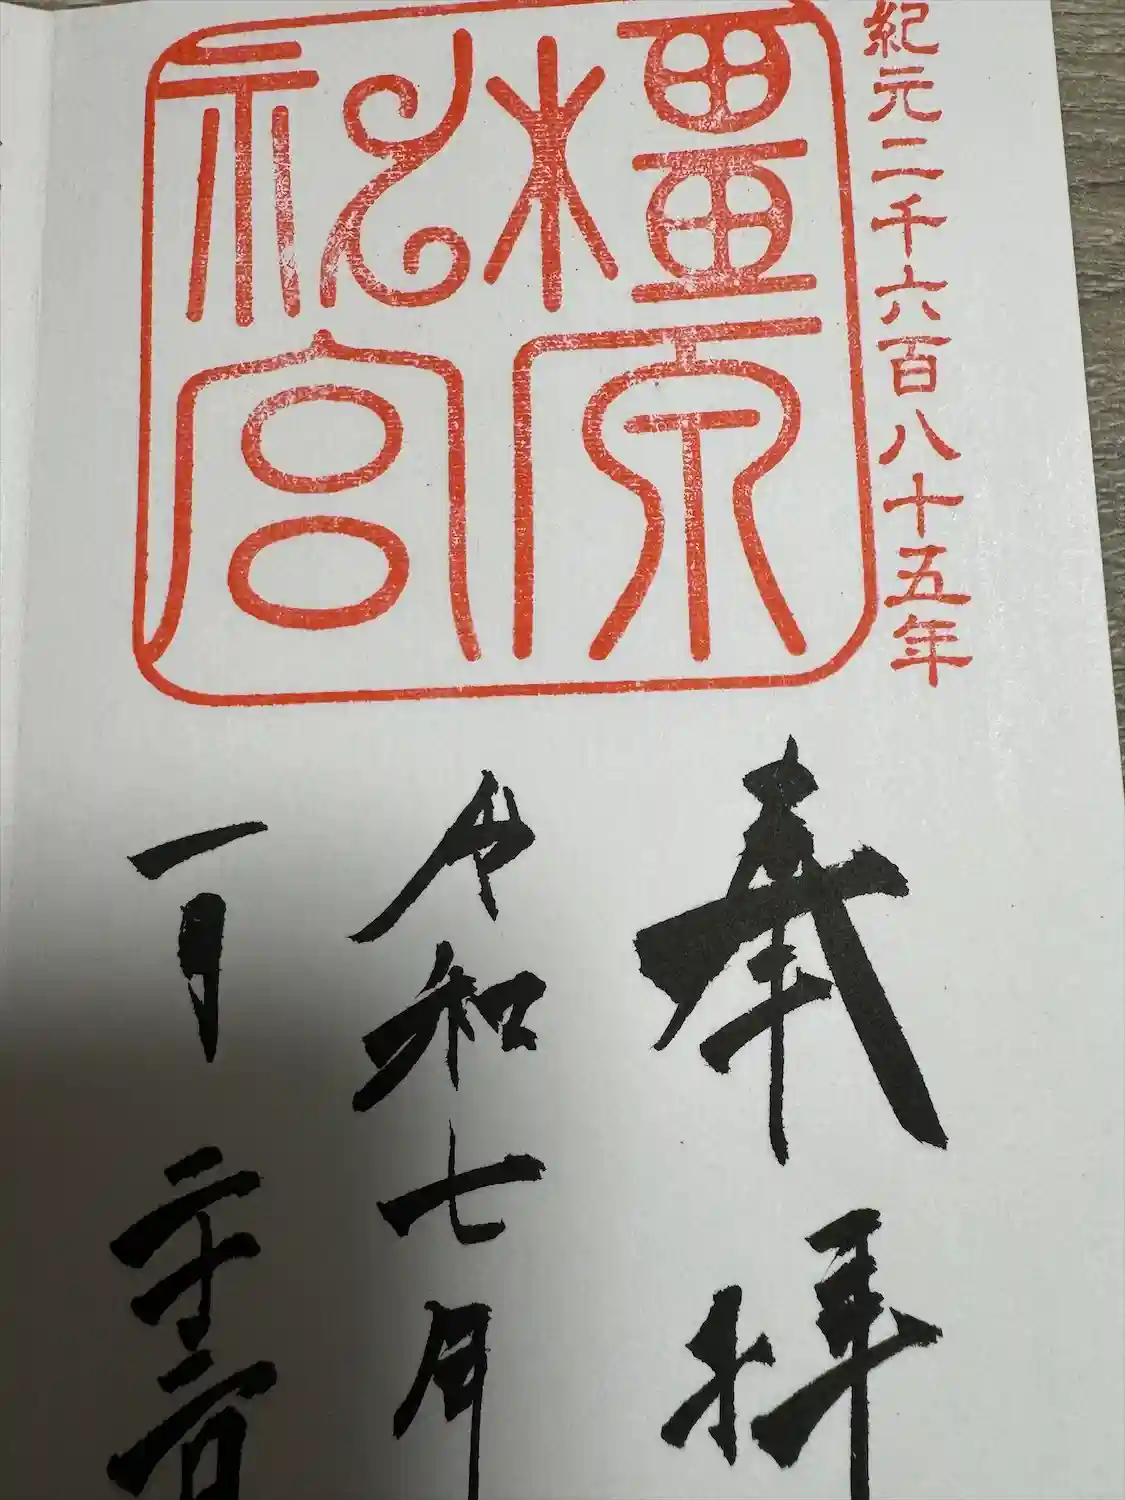 紀元二千六百八十五年
橿原
神宮
奉拝
令和七年
一月二十日